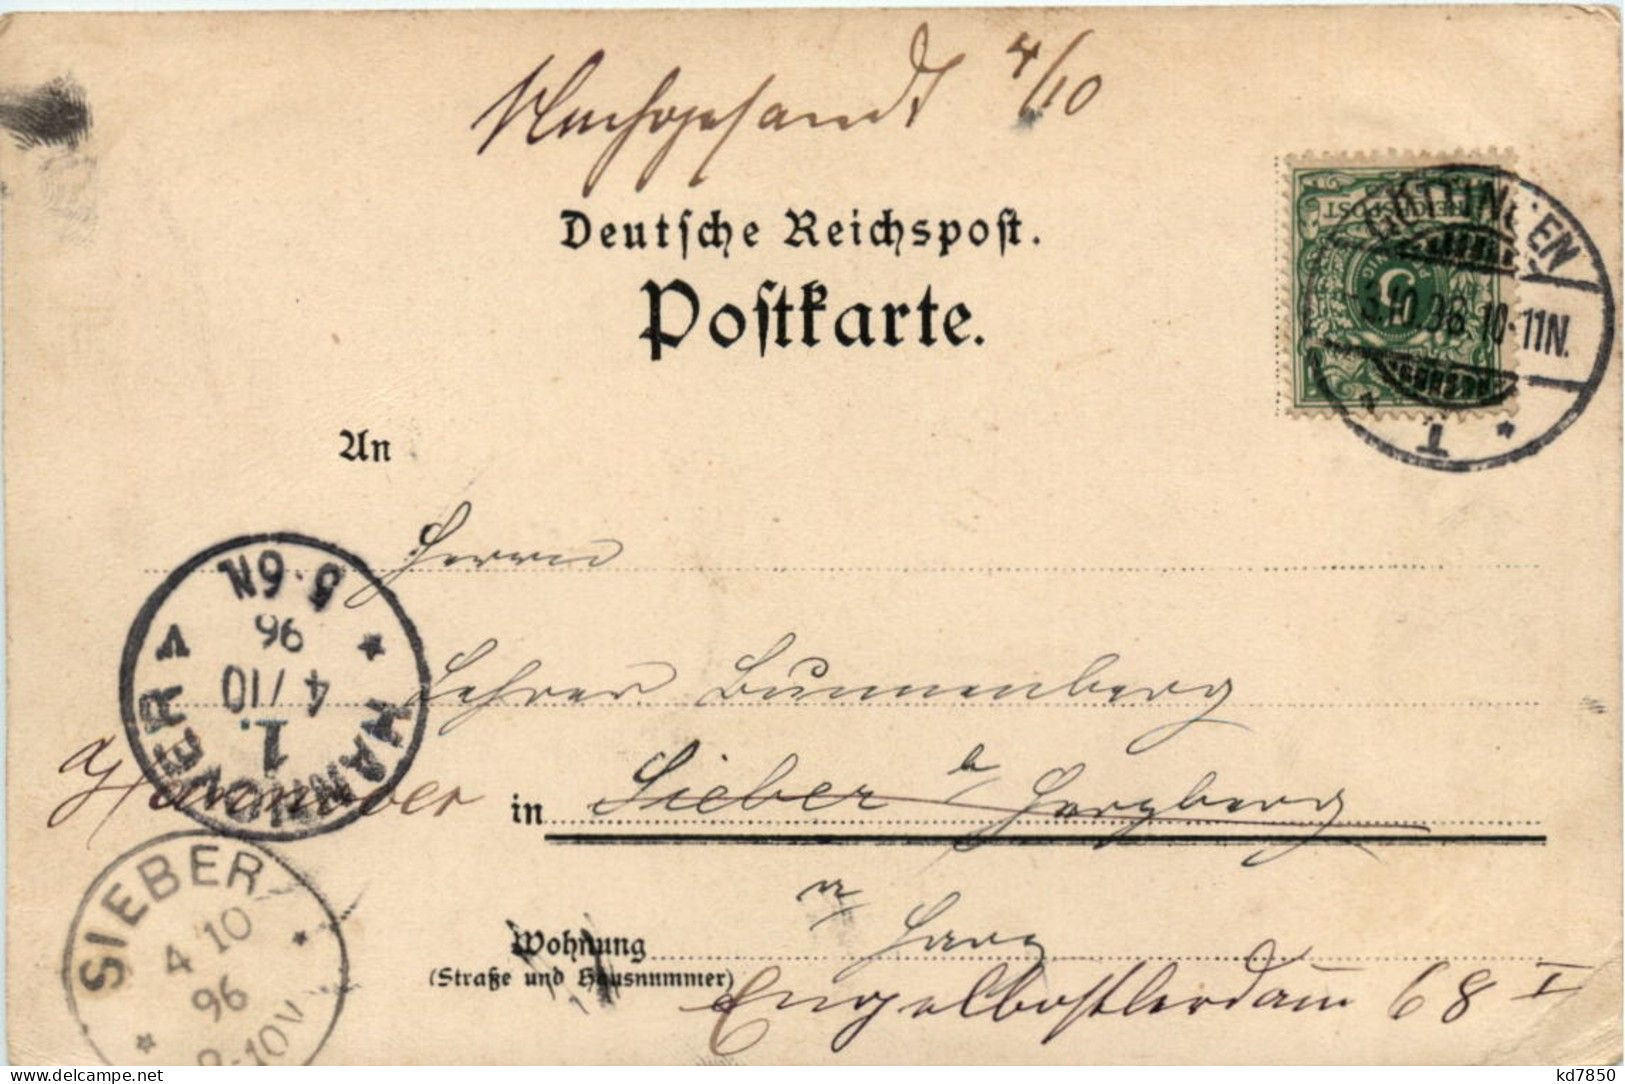 Nachgesandt 4/10
Deutsche Reichspost.
Postkarte.
REICHSPOST
5
PFENNIG
GÖTTINGEN
3.10.96.10-11N.
* 1 *
An
Herrn
Lehrer Bunnenberg
Hannover in Sieber b/ Herzberg
a/ Harz
Wohnung
(Straße und Hausnummer)
Engelbostlerdam 68 I
* HANNOVER V
1.
4/10
96
5-6N
SIEBER
4 10
96
-10V
* *
kd7850